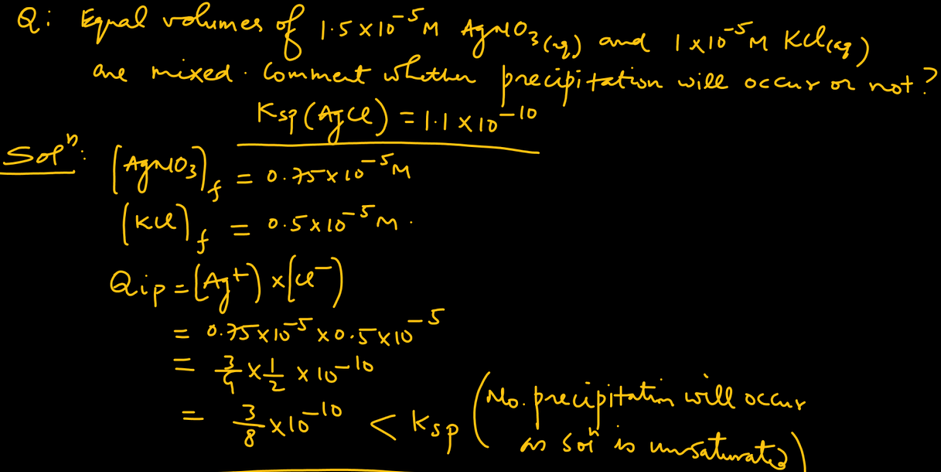 Q: Equal volumes of 1.5×10⁻⁵M AgNO₃(aq) and 1×10⁻⁵M KCl(aq)
are mixed. Comment whether precipitation will occur or not?
Ksp(AgCl) = 1.1×10⁻¹⁰
Solⁿ: [AgNO₃]f = 0.75×10⁻⁵M
[KCl]f = 0.5×10⁻⁵M.
Qip = [Ag⁺]×[Cl⁻]
= 0.75×10⁻⁵×0.5×10⁻⁵
= 3/4 × 1/2 × 10⁻¹⁰
= 3/8 × 10⁻¹⁰ < Ksp (No. precipitation will occur
as solⁿ is unsaturated)